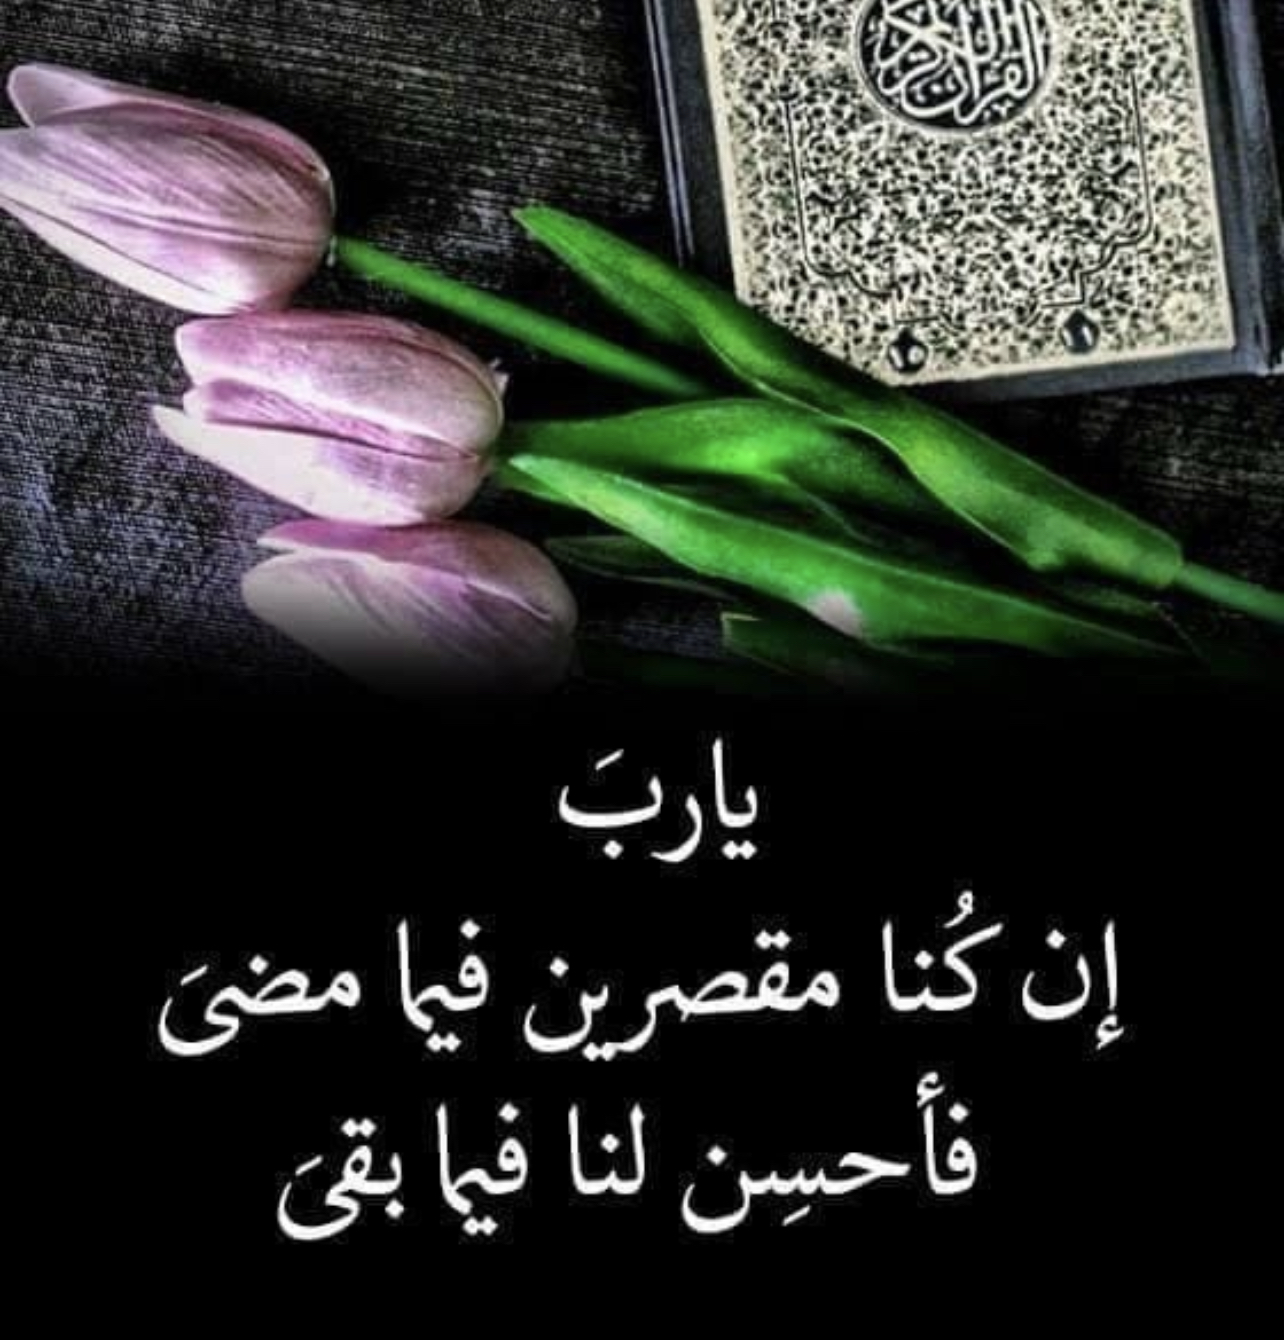 القرآن الكريم
ياربَ
إن كُنا مقصرين فيما مضىَ
فأحسِن لنا فيما بقىَ